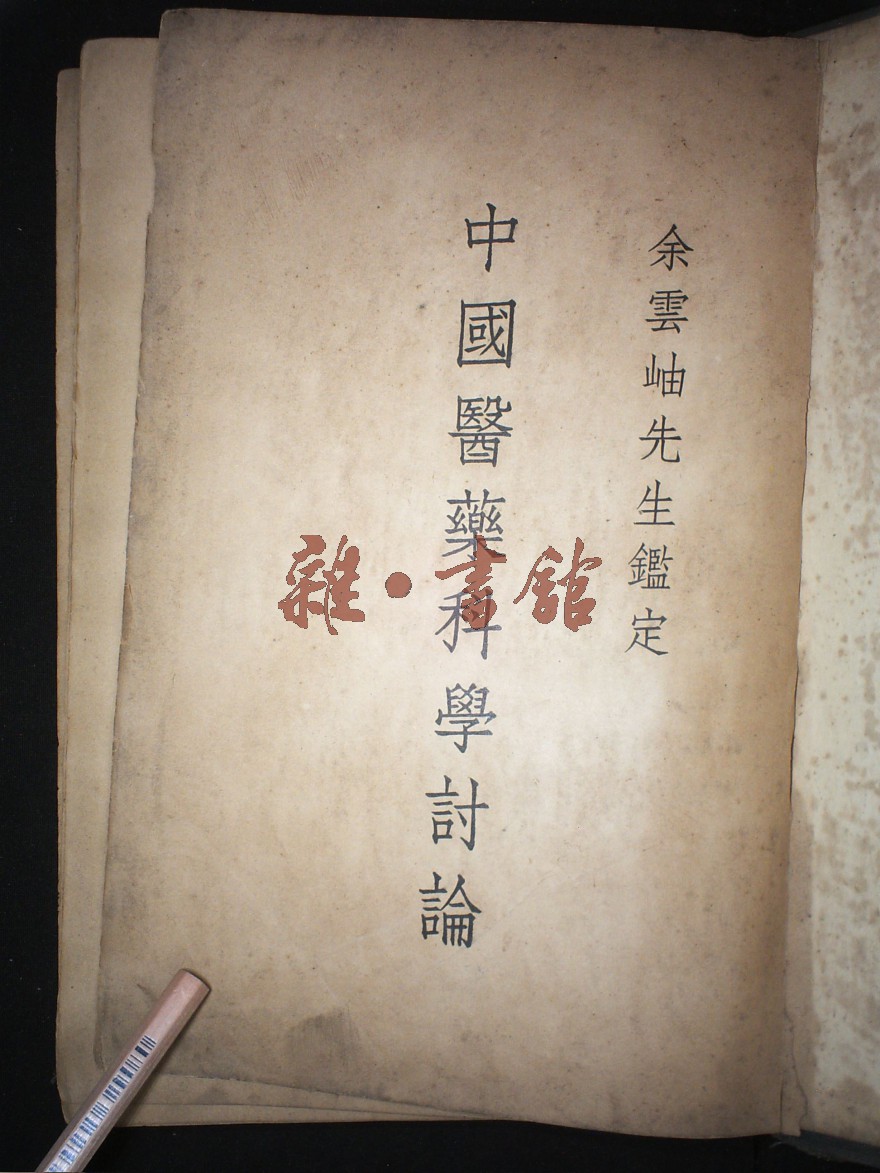 余雲岫先生鑑定
中國醫藥科學討論
雜·書館